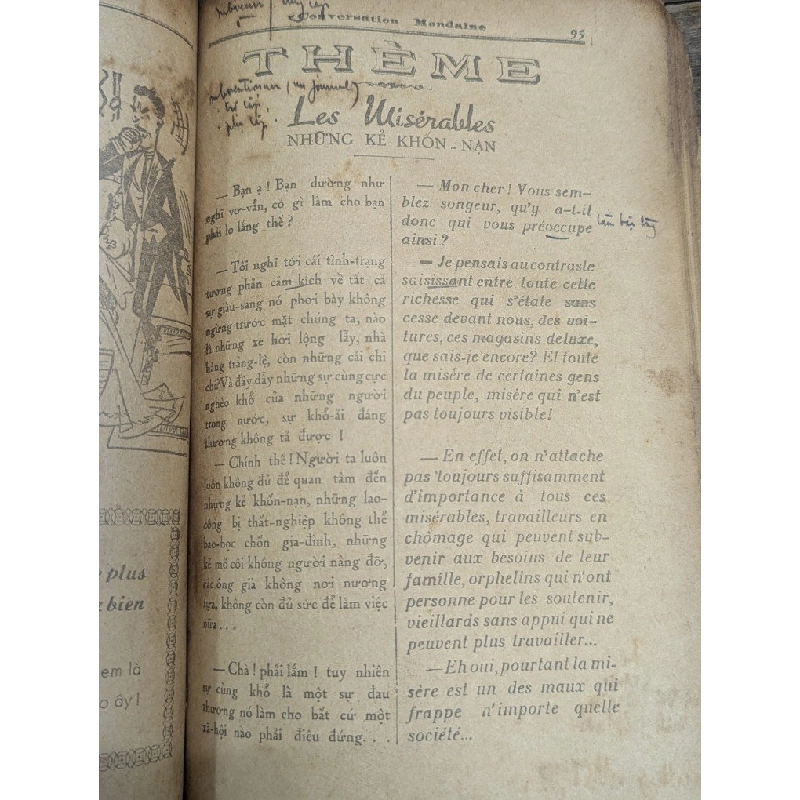 Conversation Mondaine
95
THÈME
Les Misérables
NHỮNG KẺ KHỐN-NẠN
— Bạn ạ! Bạn dường như
nghĩ vơ-vẩn, có gì làm cho bạn
phải lo lắng thế?
— Tôi nghĩ tới cái tình-trạng
tương phản cảm kích về tất cả
sự giàu-sang nó phơi bày không
ngừng trước mặt chúng ta, nào
là những xe hơi lộng lẫy, nhà
hàng tráng-lệ, còn những cái chi
chứ? Và đầy dẫy những sự cùng cực
nghèo khổ của những người
trong nước, sự khổ-ải đáng
thương không tả được!
— Chính thế! Người ta luôn
luôn không đủ để quan tâm đến
những kẻ khốn-nạn, những lao-
công bị thất-nghiệp không thể
bao-bọc chốn gia-đình, những
kẻ mồ côi không người nâng đỡ,
các ông già không nơi nương
tựa, không còn đủ sức để làm việc
nữa...
— Chà! phải lắm! tuy nhiên
sự cùng khổ là một sự đau
thương nó làm cho bất cứ một
xã-hội nào phải điêu đứng...
— Mon cher! Vous sem-
blez songeur, qu'y a-t-il
donc qui vous préoccupe
ainsi?
— Je pensais au contraste
saisissant entre toute cette
richesse qui s'étale sans
cesse devant nous, des voi-
tures, ces magasins de luxe,
que sais-je encore? Et toute
la misére de certaines gens
du peuple, misére qui n'est
pas toujours visible!
— En effet, on n'attache
pas toujours suffisamment
d'importance à tous ces
misérables, travailleurs en
chômage qui peuvent sub-
venir aux besoins de leur
famille, orphelins qui n'ont
personne pour les soutenir,
vieillards sans appui qui ne
peuvent plus travailler...
— Eh oui, pourtant la mi-
sère est un des maux qui
frappe n'importe quelle
société...
plus
bien
em là
ấy!